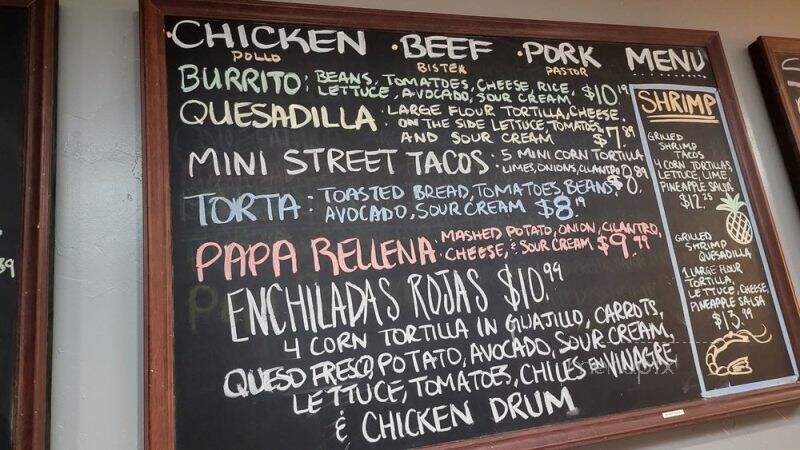 CHICKEN · BEEF · PORK MENU
POLLO BISTEK PASTOR
BURRITO: BEANS, TOMATOES, CHEESE, RICE,
LETTUCE, AVOCADO, SOUR CREAM $10.19
QUESADILLA · LARGE FLOUR TORTILLA, CHEESE,
ON THE SIDE LETTUCE, TOMATOES,
AND SOUR CREAM $7.89
MINI STREET TACOS: 5 MINI CORN TORTILLA
LIMES, ONIONS, CILANTRO $8.89
TORTA: TOASTED BREAD, TOMATOES, BEANS,
AVOCADO, SOUR CREAM $8.19
PAPA RELLENA · MASHED POTATO, ONION, CILANTRO,
CHEESE, & SOUR CREAM $9.99
ENCHILADAS ROJAS $10.99
4 CORN TORTILLA IN GUAJILLO, CARROTS,
QUESO FRESCO, POTATO, AVOCADO, SOUR CREAM,
LETTUCE, TOMATOES, CHILES EN VINAGRE
& CHICKEN DRUM
SHRIMP
GRILLED
SHRIMP
TACOS
4 CORN TORTILLAS,
LETTUCE, LIME,
PINEAPPLE SALSA
$12.25
GRILLED
SHRIMP
QUESADILLA
1 LARGE FLOUR
TORTILLA,
LETTUCE, CHEESE,
PINEAPPLE SALSA
$13.99